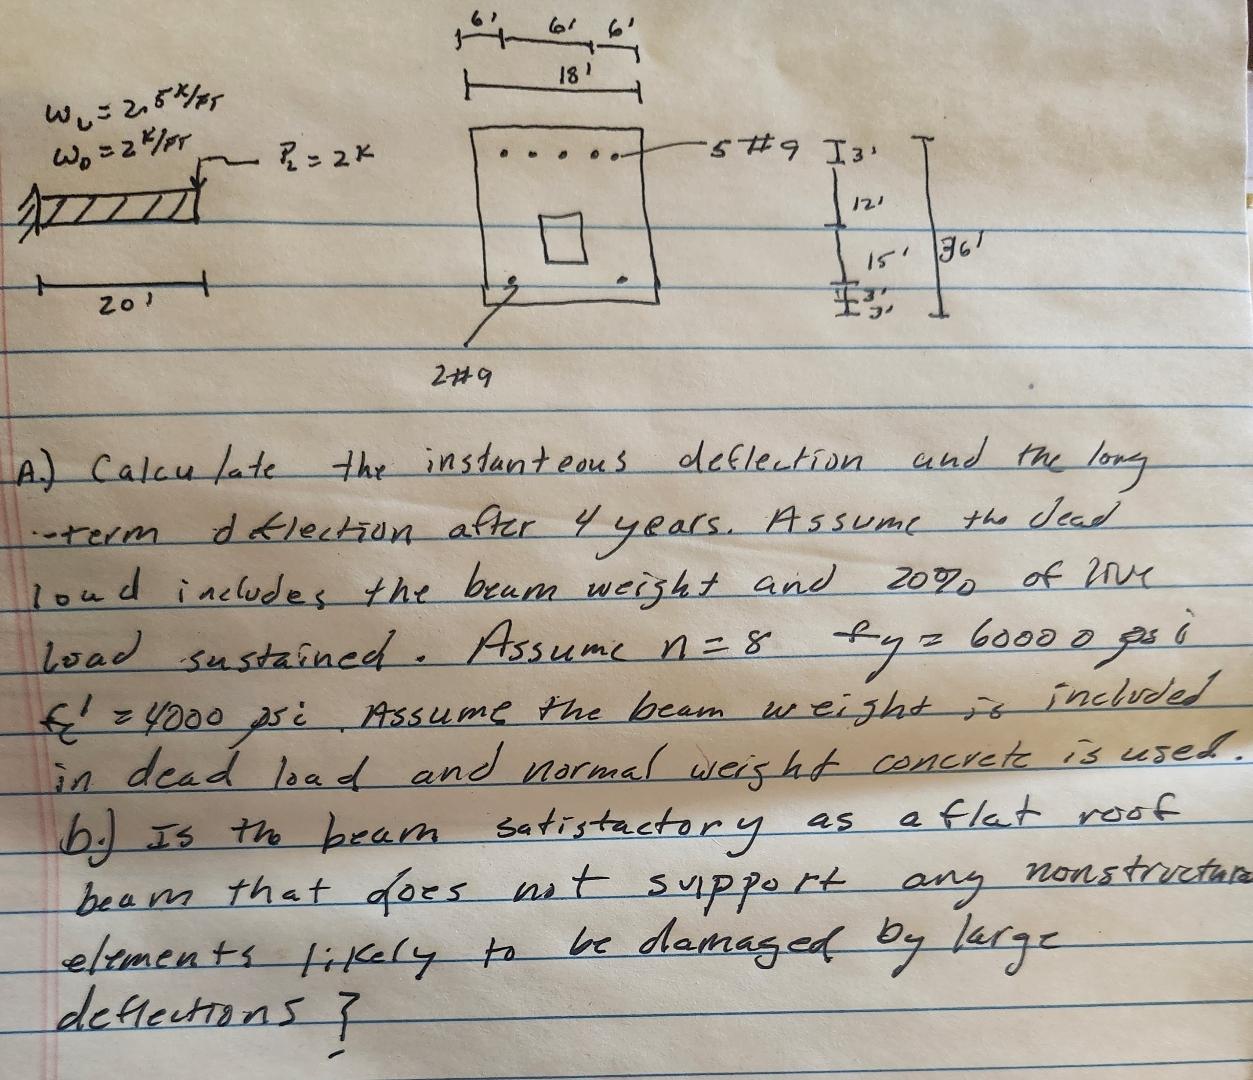 6' 6' 6'
18'
W_L = 2.5 K/FT
W_D = 2 K/FT
P_L = 2 K
5 #9
3'
12'
15'
36'
3'
3'
20'
2#9
A.) Calculate the instanteous deflection and the long
-term deflection after 4 years. Assume the dead
load includes the beam weight and 20% of live
load sustained. Assume n=8 fy = 60000 psi
fc' = 4000 psi. Assume the beam weight is included
in dead load and normal weight concrete is used.
b.) Is the beam satisfactory as a flat roof
beam that does not support any nonstructura
elements likely to be damaged by large
deflections?